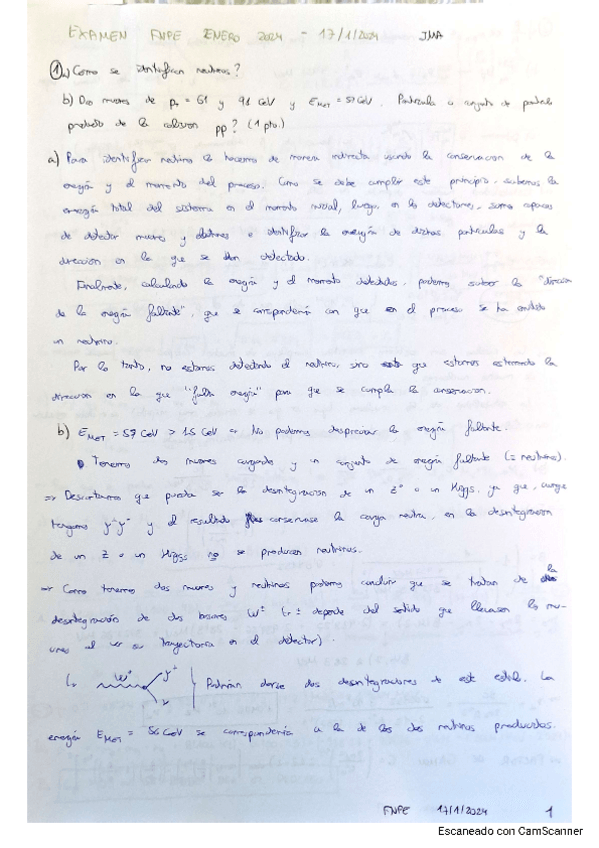 EXAMEN FNPE ENERO 2024 - 17/1/2024 JMA
1 a) Como se identifican neutrinos?
b) Dos muones de pT = 61 y 91 GeV y EMET = 57 GeV. Partícula o conjunto de partículas
producto de la colision pp? (1 pto.)
a) Para identificar neutrinos lo hacemos de manera indirecta usando la conservacion de la
energía y el momento del proceso. Como se debe cumplir este principio, sabemos la
energía total del sistema en el momento inicial, luego en los detectores, somos capaces
de detectar muones y e identificar la energía de dichas partículas y la
direccion en la que se han detectado.
Finalmente, calculando la energía y el momento detectados, podemos saber la "direccion
de la energía faltante", que se correspondería con que en el proceso se ha emitido
un neutrino.
Por lo tanto, no estamos detectando el neutrino, sino que estamos estimando la
direccion en la que "falta energía" para que se cumpla la conservacion.
b) EMET = 57 GeV > 15 GeV ⇒ No podemos despreciar la energía faltante.
• Tenemos dos muones cargados y un conjunto de energía faltante (≡ neutrino).
⇒ Descartamos que pueda ser la desintegracion de un Z⁰ o un Higgs, ya que, aunque
tengamos μ⁺μ⁻ y el resultado conservase la carga neutra, en la desintegracion
de un Z o un Higgs no se producen neutrinos.
⇒ Como tenemos dos muones y neutrinos podemos concluir que se tratan de la
desintegración de dos bosones W± (± depende del sentido que llevasen los mu-
ones al ver su trayectoria en el detector).
W± μ± ν } Podrían darse dos desintegraciones de este estilo. La
energía EMET = 56 GeV se correspondería a la de los dos neutrinos producidos.
FNPE 17/1/2024 1
Escaneado con CamScanner